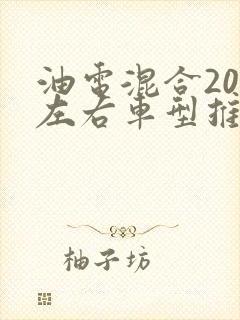 油电混合20
左右车型推
柚子坊